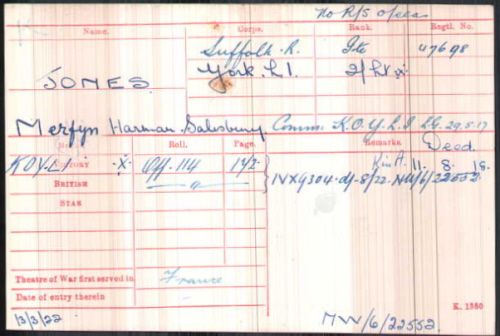 No R/S of ees
Name. Corps. Rank. Regtl. No.
Suffolk. R. Pte 47698
JONES York. L.I. 2/Lt
Merfyn Harman Salesbury. Comm: K.O.Y.L.I LG. 29.5.17
Roll. Page. Remarks Deed.
VICTORY KOYLI -X- Off. 114 142 Kin A. 11. 8. 18.
BRITISH — a — IVX9304. df. 8/22. NW/6/22552.
STAR
Theatre of War first served in France
Date of entry therein
K. 1380
13/3/22 MW/6/22552.